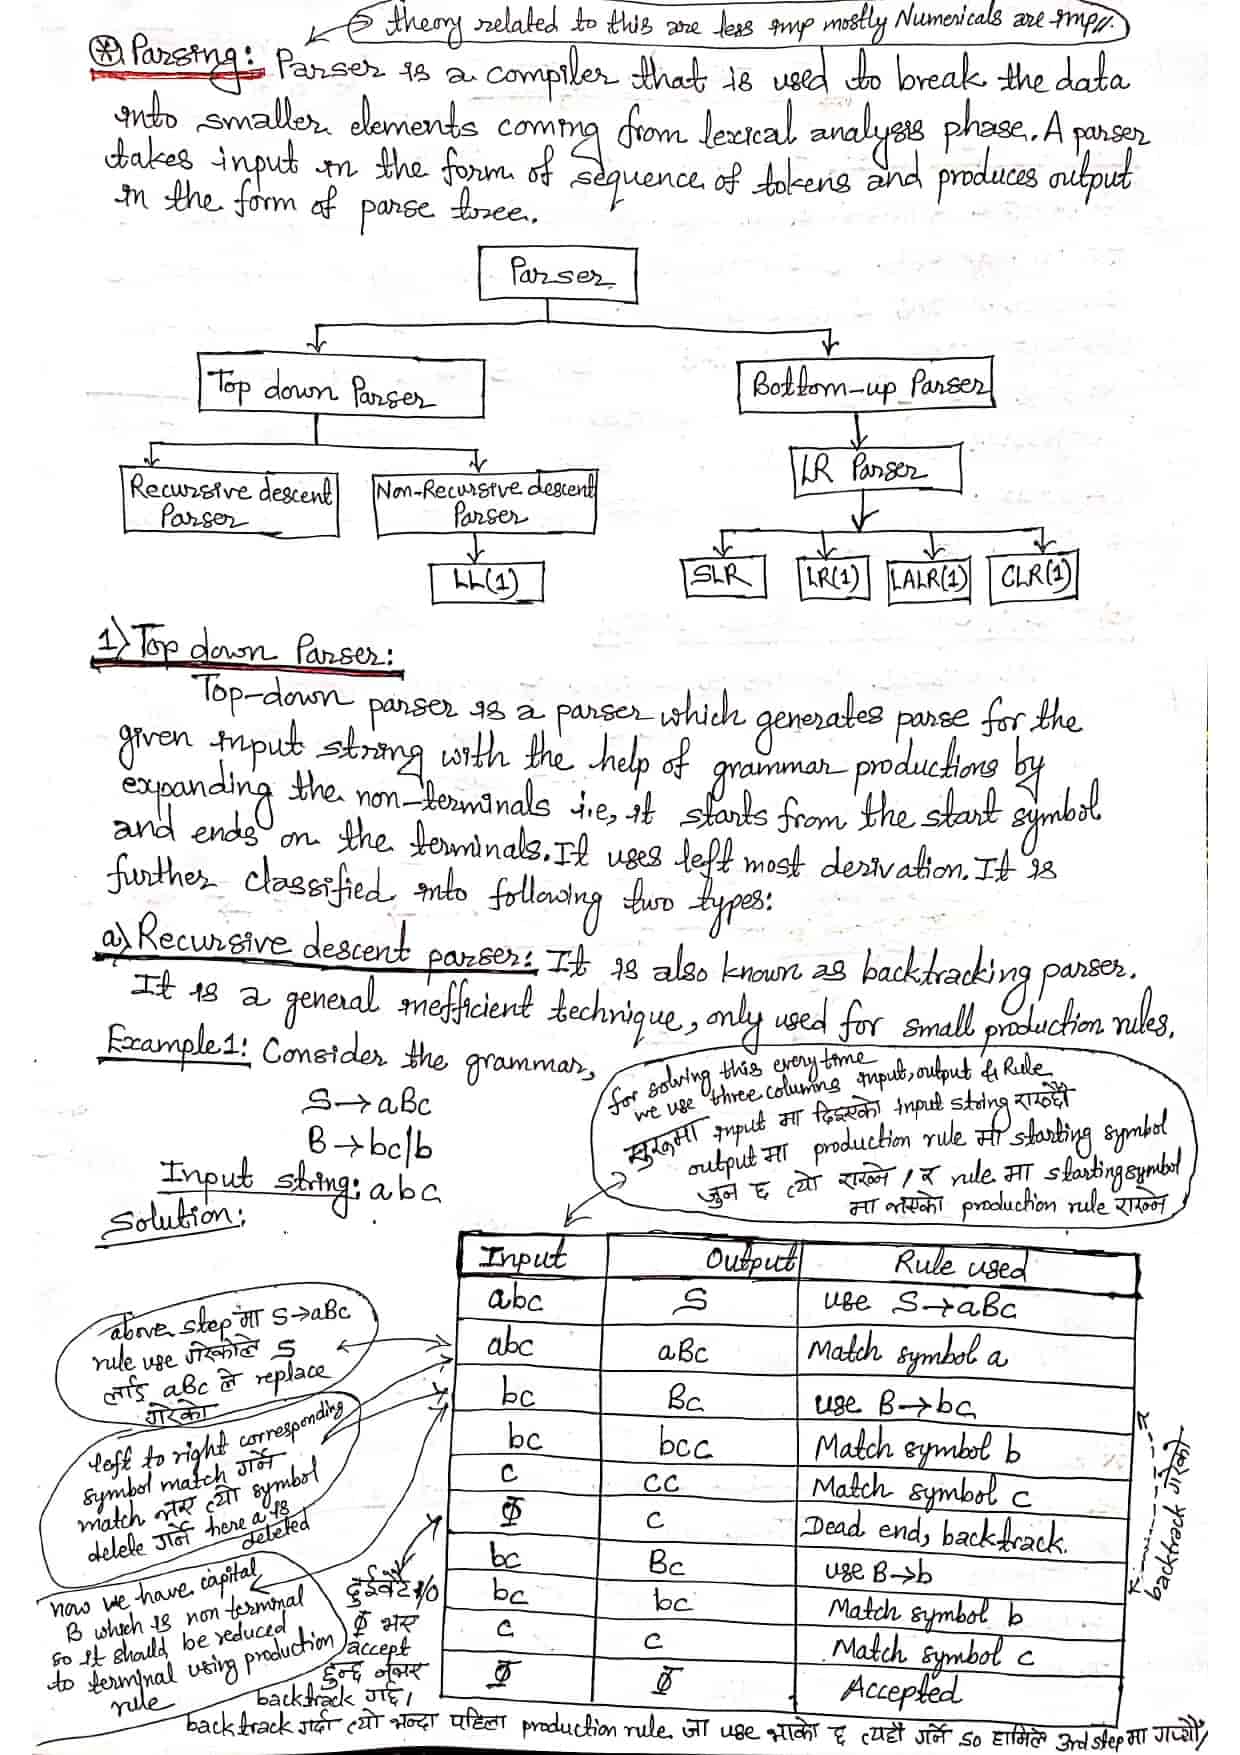 → theory related to this are less imp mostly Numericals are imp//.
⊛ Parsing: Parser is a compiler that is used to break the data
into smaller elements coming from lexical analysis phase. A parser
takes input in the form of sequence of tokens and produces output
in the form of parse tree.
Parser
Top down Parser
Bottom-up Parser
LR Parser
Recursive descent
Parser
Non-Recursive descent
Parser
LL(1)
SLR
LR(1)
LALR(1)
CLR(1)
1) Top down Parser:
Top-down parser is a parser which generates parse for the
given input string with the help of grammar productions by
expanding the non-terminals i.e, it starts from the start symbol
and ends on the terminals. It uses left most derivation. It is
further classified into following two types:
a) Recursive descent parser: It is also known as backtracking parser.
It is a general inefficient technique, only used for small production rules.
Example1: Consider the grammar,
S→aBc
B→bc/b
Input string: abc
Solution:
for solving this every time
we use three columns input, output & Rule
सुरुमा input मा दिइएको input string राख्दौ
output मा production rule मा starting symbol
जुन छ त्यो राख्ने / र rule मा starting symbol
मा भएको production rule राख्ने
Input Output Rule used
abc S use S→aBc
abc aBc Match symbol a
bc Bc use B→bc
bc bcc Match symbol b
c cc Match symbol c
Φ c Dead end, backtrack.
bc Bc use B→b
bc bc Match symbol b
c c Match symbol c
Φ Φ Accepted
backtrack गरेको
above step मा S→aBc
rule use गरेकोले S
लाई aBc ले replace
गरेको
left to right corresponding
symbol match गर्ने
match भए त्यो symbol
delete गर्ने here a is
deleted
now we have capital
B which is non terminal
so it should be reduced
to terminal using production
rule
दुईवटै
Φ भए
accept
हुन्छ नभए
backtrack गर्छ।
backtrack गर्दा त्यो भन्दा पहिला production rule जा use भाको छ त्यहाँ गर्ने so हामिले 3rd step मा गयौं/